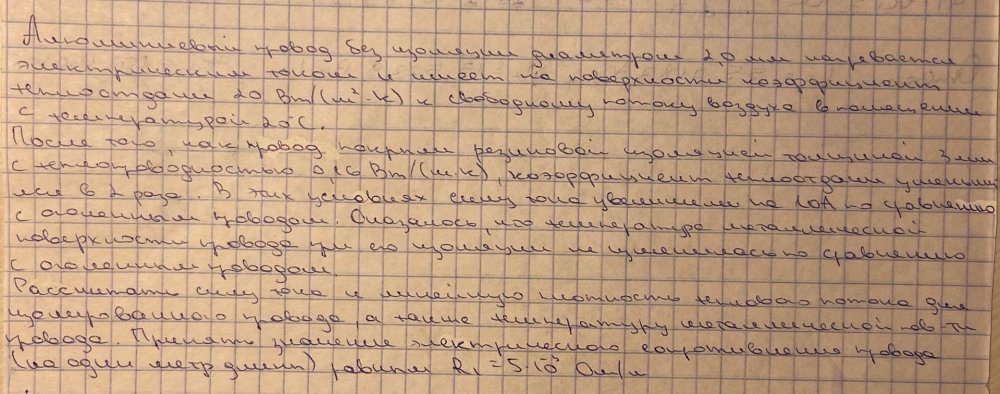 Алюминиевый провод без изоляции диаметром 2,0 мм нагревается
электрическим током и имеет на поверхности коэффициент
теплоотдачи 20 Вт/(м²·К) к свободному потоку воздуха в помещении
с температурой 20°С.
После того, как провод покрыли резиновой изоляцией толщиной 3 мм
с теплопроводностью 0,16 Вт/(м·К), коэффициент теплоотдачи уменьши
лся в 2 раза. В этих условиях силу тока увеличили на 10А по сравнению
с оголенным проводом. Оказалось, что температура металлической
поверхности провода при его изоляции не изменилась по сравнению
с оголенным проводом.
Рассчитать силу тока и линейную плотность теплового потока для
изолированного провода, а также температуру металлической пов-ти
провода. Принять значение электрического сопротивления провода
(на один метр длины) равным R₁=5·10⁻³ Ом/м